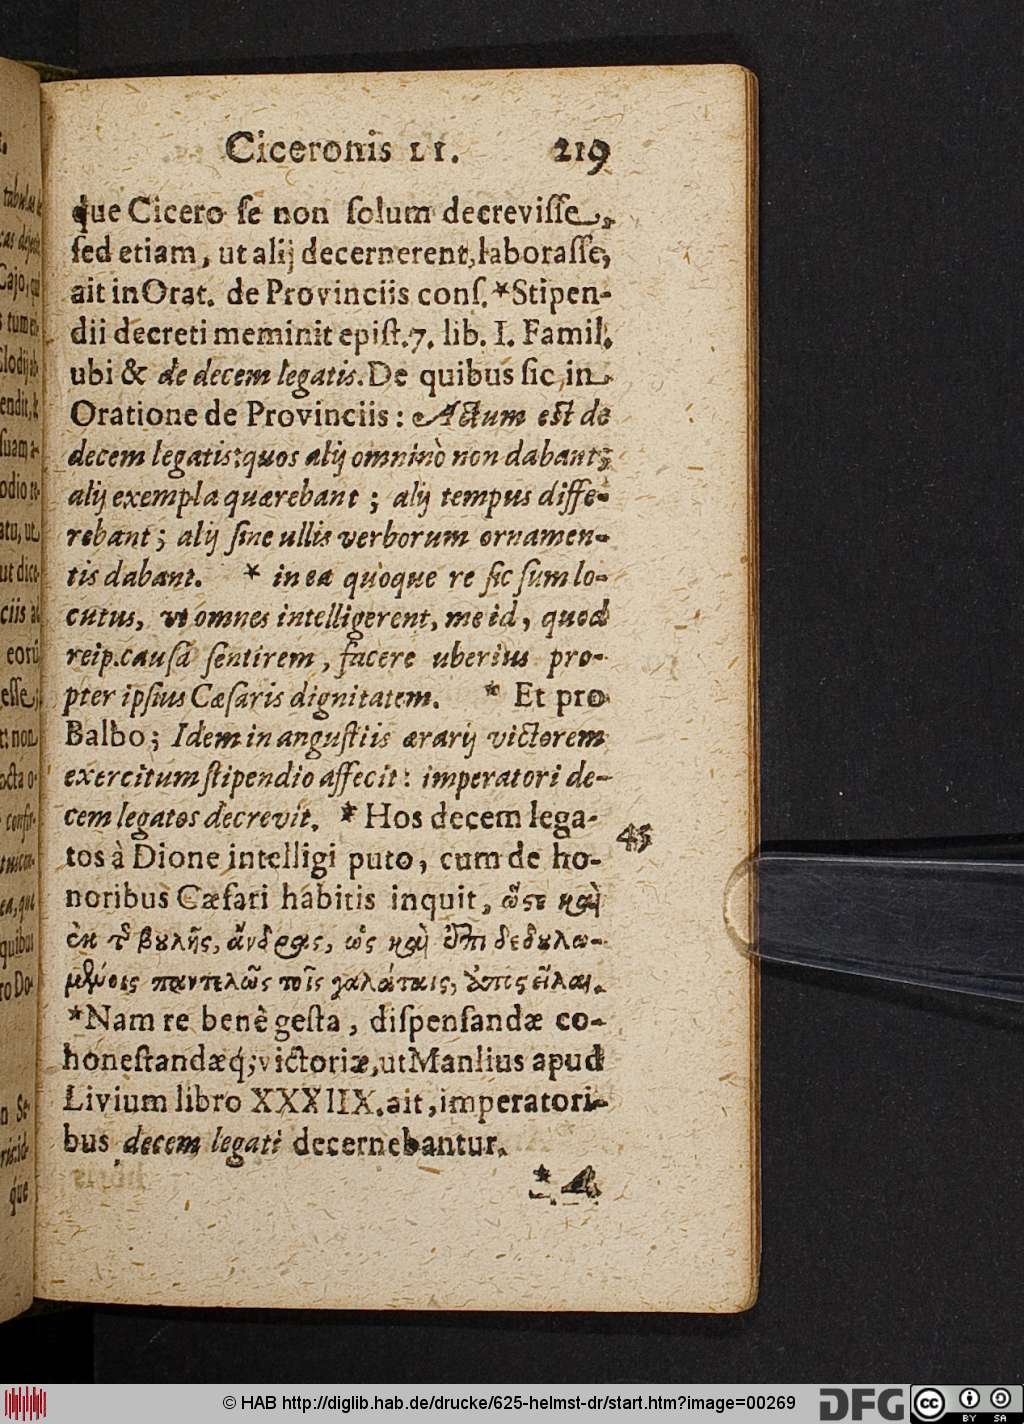 Ciceronis LI. 219
que Cicero se non solum decrevisse,
sed etiam, ut alij decernerent, laborasse,
ait in Orat. de Provinciis cons. *Stipen-
dii decreti meminit epist. 7. lib. I. Famil.
ubi & de decem legatis. De quibus sic in
Oratione de Provinciis: Actum est de
decem legatis: quos alij omninò non dabant;
alij exempla quærebant; alij tempus diffe-
rebant; alij sine ullis verborum ornamen-
tis dabant. * in ea quoque re sic sum lo-
cutus, vt omnes intelligerent, me id, quod
reip. causâ sentirem, facere uberius pro-
pter ipsius Cæsaris dignitatem. * Et pro
Balbo; Idem in angustiis ærarij victorem
exercitum stipendio affecit: imperatori de-
cem legatos decrevit. * Hos decem lega-
45
tos à Dione intelligi puto, cum de ho-
noribus Cæsari habitis inquit, ὥςε καὶ
ἐκ τ͂ βȣλῆς, ἄνδρας, ὡς καὶ ἐπὶ δεδȣλω-
μένοις παντελῶς τοῖς γαλάταις,
*Nam re benè gesta, dispensandæ co-
honestandæq́; victoriæ, ut Manlius apud
Livium libro XXXIIX. ait, imperatori-
bus decem legati decernebantur.
* A
tabulas
Cajo, qui
Clodij
endit, &
suam a-
odio re-
ut
ut dict-
ciis
eorū
esse,
non
octa o-
quibus
ro Do-
Se-
que
© HAB http://diglib.hab.de/drucke/625-helmst-dr/start.htm?image=00269
DFG
cc BY SA